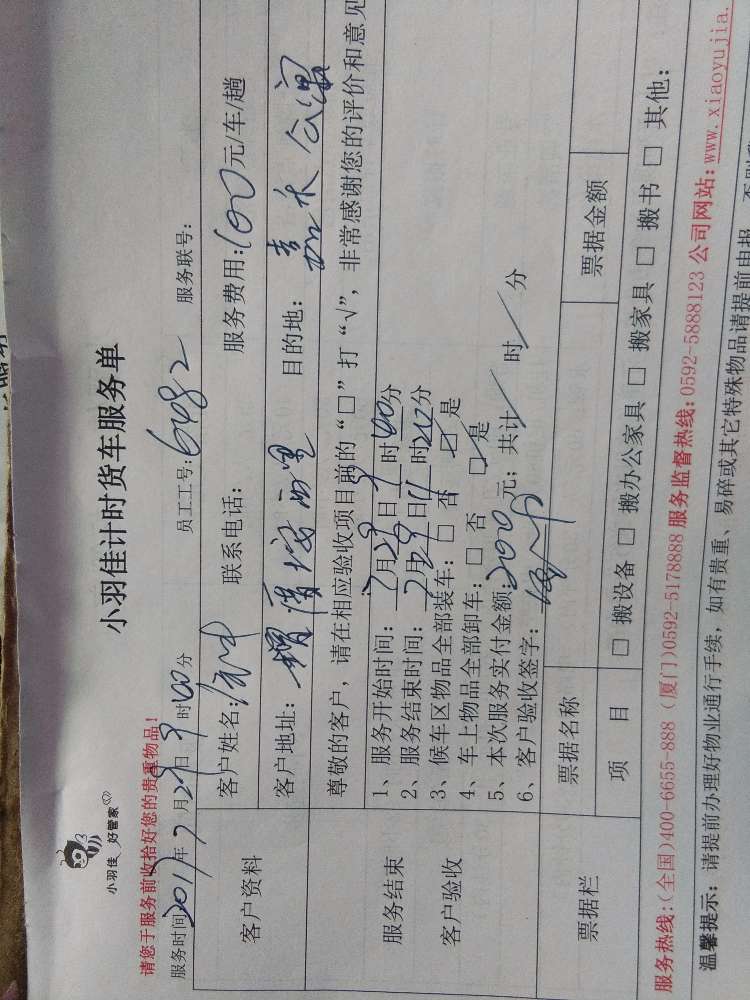 小羽佳 好管家
小羽佳计时货车服务单
请您于服务前收拾好您的贵重物品!
服务时间2017年7月29日9时00分 员工工号:6482 服务联号:
客户资料
客户姓名: 联系电话: 服务费用:100元/车/趟
客户地址: 目的地:嘉禾公寓
服务结束
客户验收
尊敬的客户,请在相应验收项目前的“□”打“√”,非常感谢您的评价和意见
1、服务开始时间:7月29日9时00分
2、服务结束时间:7月29日11时20分
3、候车区物品全部装车:□ 否 ☑ 是
4、车上物品全部卸车:□ 否 ☑ 是
5、本次服务实付金额:200元;共计/时/分
6、客户验收签字:
票据栏
票据名称 票据金额
项 目 □ 搬设备 □ 搬办公家具 □ 搬家具 □ 搬书 □ 其他:
服务热线:(全国)400-6655-888 (厦门)0592-5178888 服务监督热线:0592-5888123 公司网站:www.xiaoyujia.
温馨提示:请提前办理好物业通行手续,如有贵重、易碎或其它特殊物品请提前申报